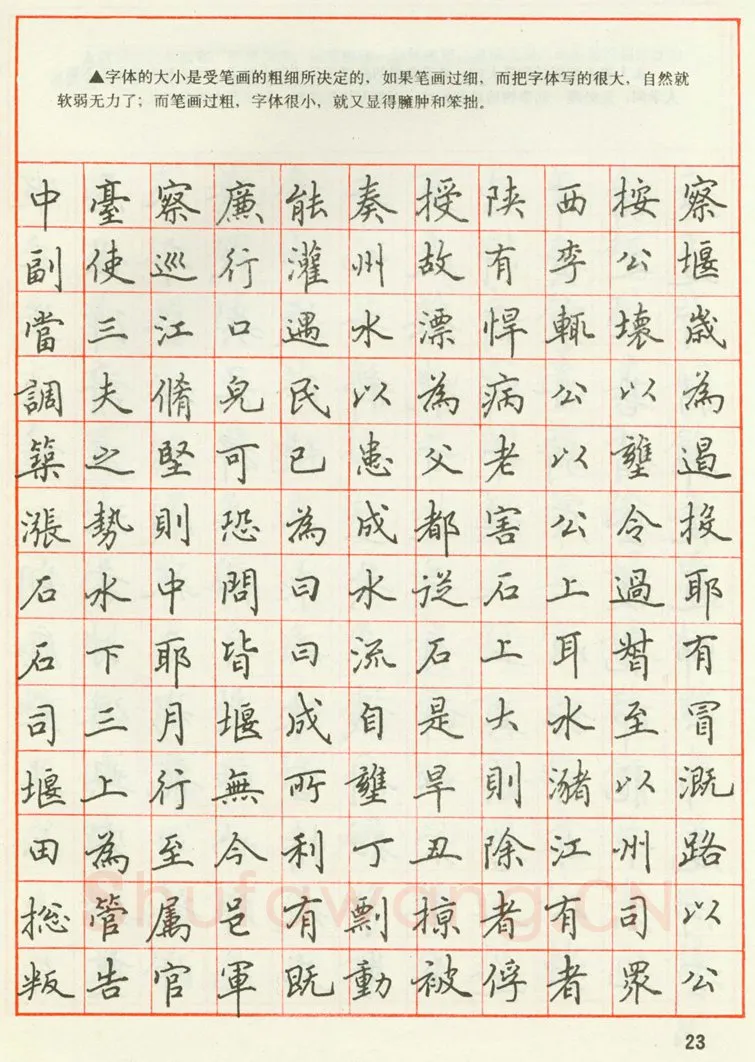 ▲字体的大小是受笔画的粗细所决定的，如果笔画过细，而把字体写的很大，自然就
软弱无力了；而笔画过粗，字体很小，就又显得臃肿和笨拙。
中臺察廉能奏授陕西按察
副使巡行灌州故有李公堰
當三江口遇水漂悍輒壞歲
調夫脩皃民以為病公以為
築之堅可已患父老以壅遏
漲勢則恐為成都害公令投
石水中問曰水従石上過耶
石下耶皆曰流石上耳督有
司三月堰成自是大水至冒
堰上行無所壅旱則瀦以溉
田為至今利丁丑除江州路
総管属邑有剽掠者有司以
叛告官軍既動被俘者眾公
Shufawang.CN
23